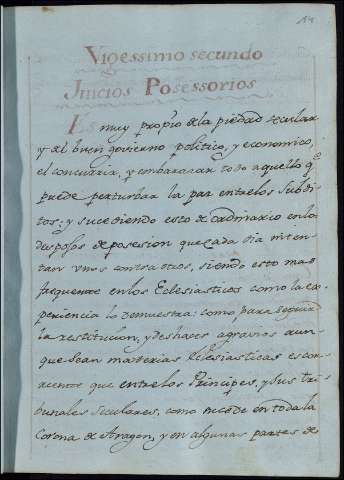 14
Vigessimo secundo
Juicios Posessorios
Es muy proprio de la piedad secular
y del buen govierno politico, y economico,
el concurrir, y embarazar todo aquello q.e
puede perturbar la paz entre los subdi
tos; y sucediendo esto de ordinario en los
despojos de posesion que cada dia inten
tan unos contra otros, siendo esto mas
frequente en los Eclesiasticos como la ex
periencia lo demuestra: como para seguir
la restitucion, y deshacer agravios aun
que sean materias Eclesiasticas es cor
riente que entre los Principes, y sus tri
bunales seculares, como sucede en toda la
Corona de Aragon, y en algunas partes de